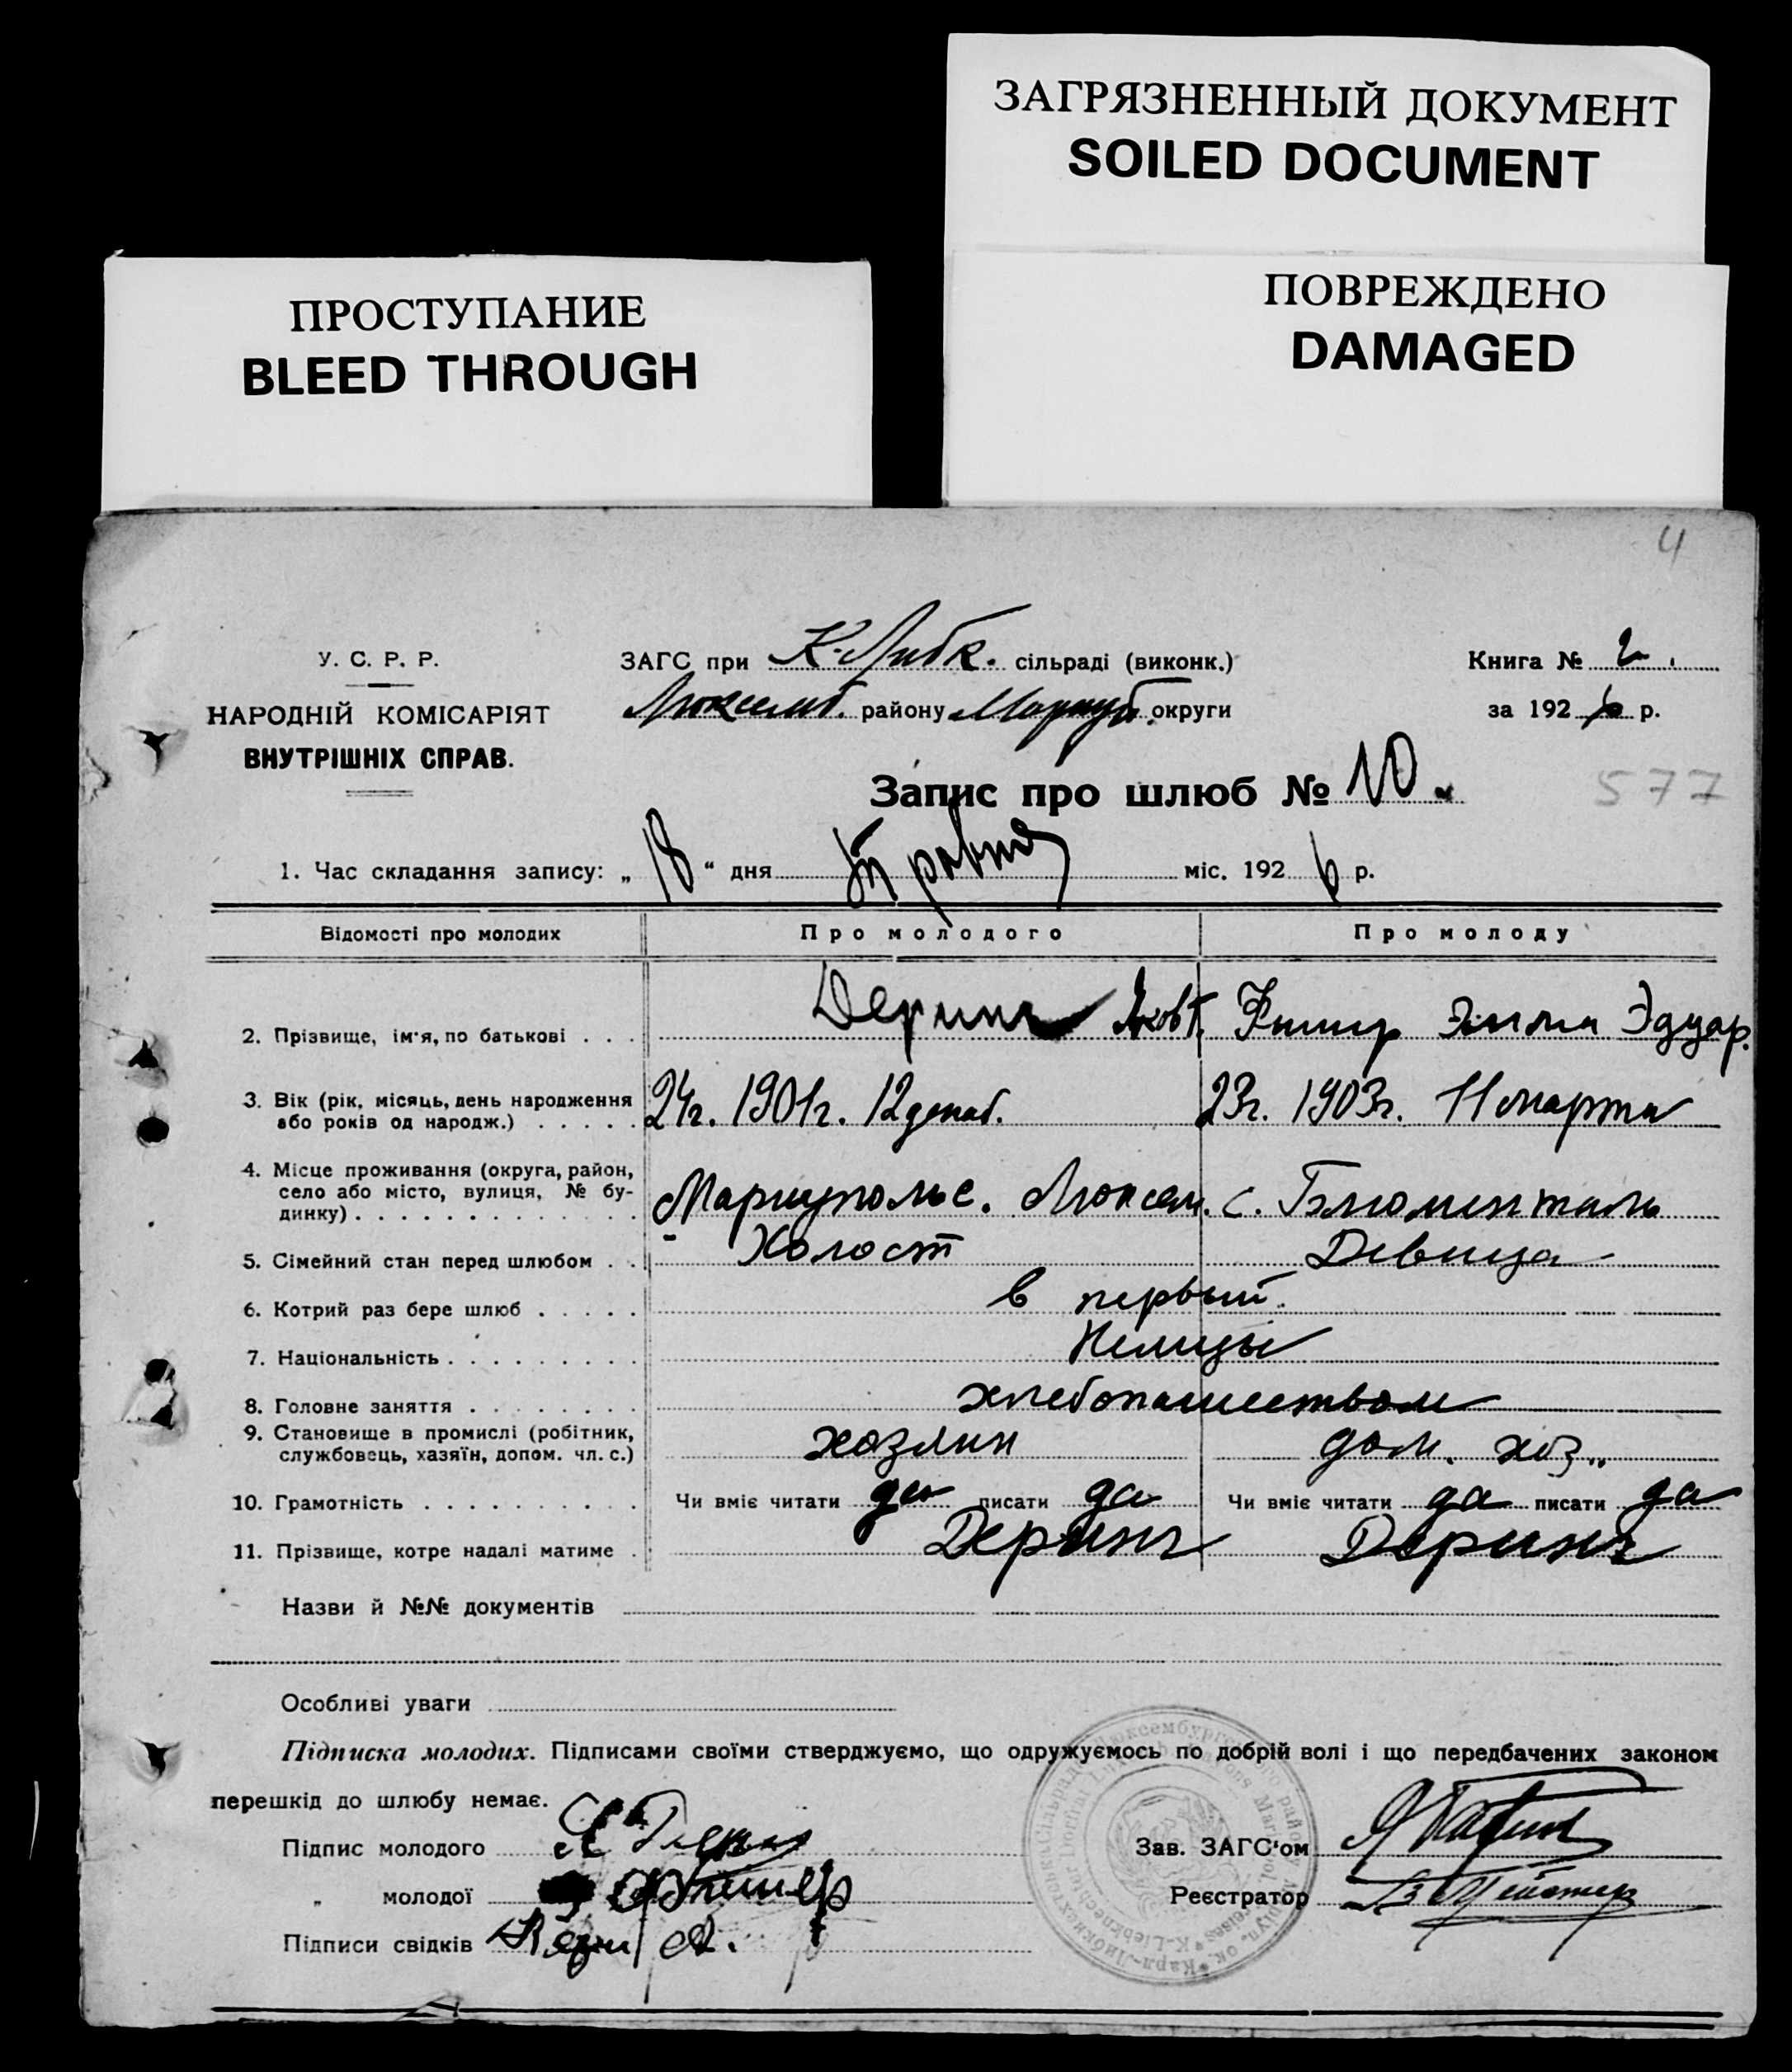 ЗАГРЯЗНЕННЫЙ ДОКУМЕНТ
SOILED DOCUMENT
ПРОСТУПАНИЕ
BLEED THROUGH
ПОВРЕЖДЕНО
DAMAGED
4
У. С. Р. Р.
НАРОДНІЙ КОМІСАРІЯТ
ВНУТРІШНІХ СПРАВ.
ЗАГС при К-Либк. сільраді (виконк.)
Люксемб. району Мариуп. округи
Книга № 2.
за 1926 р.
Запис про шлюб № 10.
577
1. Час складання запису: „18“ дня Травня міс. 1926 р.
Відомості про молодих Про молодого Про молоду
2. Прізвище, ім'я, по батькові . . . Деринг Яков Фишер Эмма Эдуар.
3. Вік (рік, місяць, день народження
або років од народж.) . . . . . 24г. 1901г. 12 декаб. 23г. 1903г. 11 марта
4. Місце проживання (округа, район,
село або місто, вулиця, № бу-
динку) . . . . . . . . . . . . . Мариупольс. Люксем. с. Блюменталь
5. Сімейний стан перед шлюбом . . Холост Девица
6. Котрий раз бере шлюб . . . . . в первый.
7. Національність . . . . . . . . . Немцы
8. Головне заняття . . . . . . . . хлебопашеством
9. Становище в промислі (робітник,
службовець, хазяїн, допом. чл. с.) хозяин дом. хоз..
10. Грамотність . . . . . . . . . . Чи вміє читати да писати да Чи вміє читати да писати да
11. Прізвище, котре надалі матиме . Деринг Деринг
Назви й №№ документів
Особливі уваги
Підписка молодих. Підписами своїми стверджуємо, що одружуємось по добрій волі і що передбачених законом
перешкід до шлюбу немає.
Підпис молодого
Зав. ЗАГС'ом
„ молодої Фишер
Реєстратор
Підписи свідків